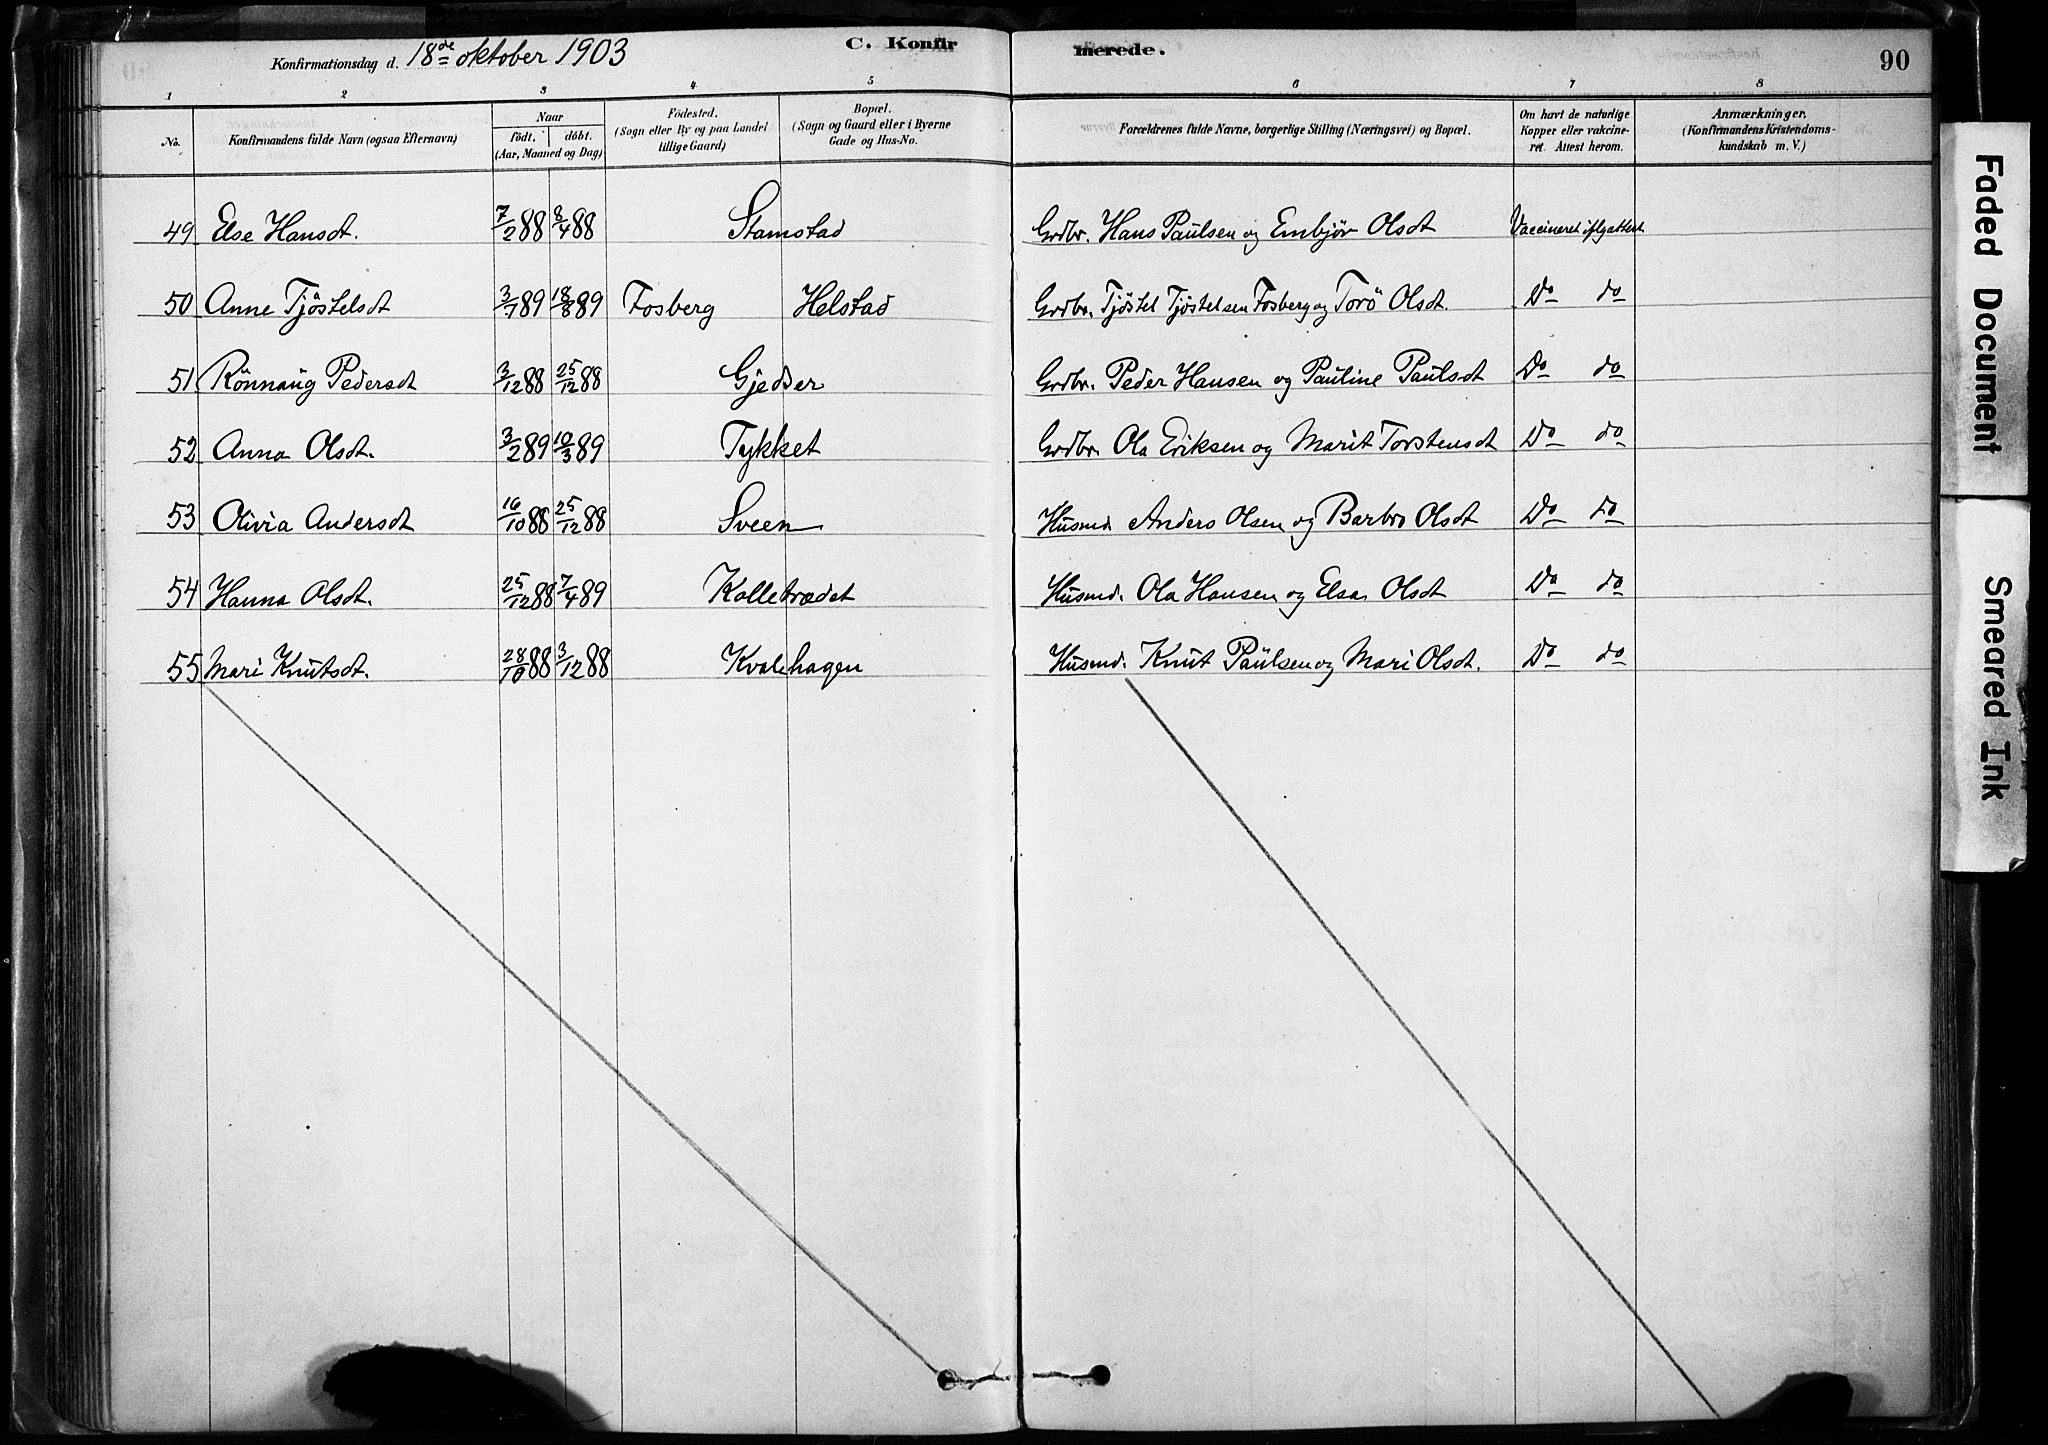 Konfirmationsdag d. 18de oktober 1903 C. Konfirmerede. 90
1 2 3 4 5 6 7 8
No. Konfirmandens fulde Navn (ogsaa Efternavn) Naar født. døbt. (Aar, Maaned og Dag) Fødested. (Sogn eller By og paa Landet tillige Gaard) Bopæl. (Sogn og Gaard eller i Byerne Gade og Hus-No. Forældrenes fulde Navne, borgerlige Stilling (Næringsvei) og Bopæl. Om havt de naturlige Kopper eller vakcineret. Attest herom. Anmærkninger. (Konfirmandens Kristendomskundskab m. V.)
49 Else Hansdt. 7/2 88 8/4 88 Stamstad Grdbr. Hans Paulsen og Embjør Olsdt Vaccineret iflg attest
50 Anne Tjøstelsdt 3/7 89 18/8 89 Fosberg Helstad Grdbr. Tjøstel Tjøstelsen Fosberg og Torø Olsdt. Do do
51 Rönnaug Pedersdt 3/12 88 25/12 88 Gjedser Grdbr. Peder Hansen og Pauline Paulsdt Do do
52 Anna Olsdt. 3/2 89 10/3 89 Tykket Grdbr. Ola Eriksen og Marit Torstensdt Do do
53 Olivia Andersdt 16/10 88 25/12 88 Sveen Husmd. Anders Olsen og Barbro Olsdt Do do
54 Hanna Olsdt. 25/12 88 7/4 89 Kolletrædet Husmd. Ola Hansen og Elsa Olsdt Do do
55 Mari Knutsdt. 28/10 88 3/12 88 Kvalehagen Husmd. Knut Paulsen og Mari Olsdt. Do do
Faded Document
Smeared Ink